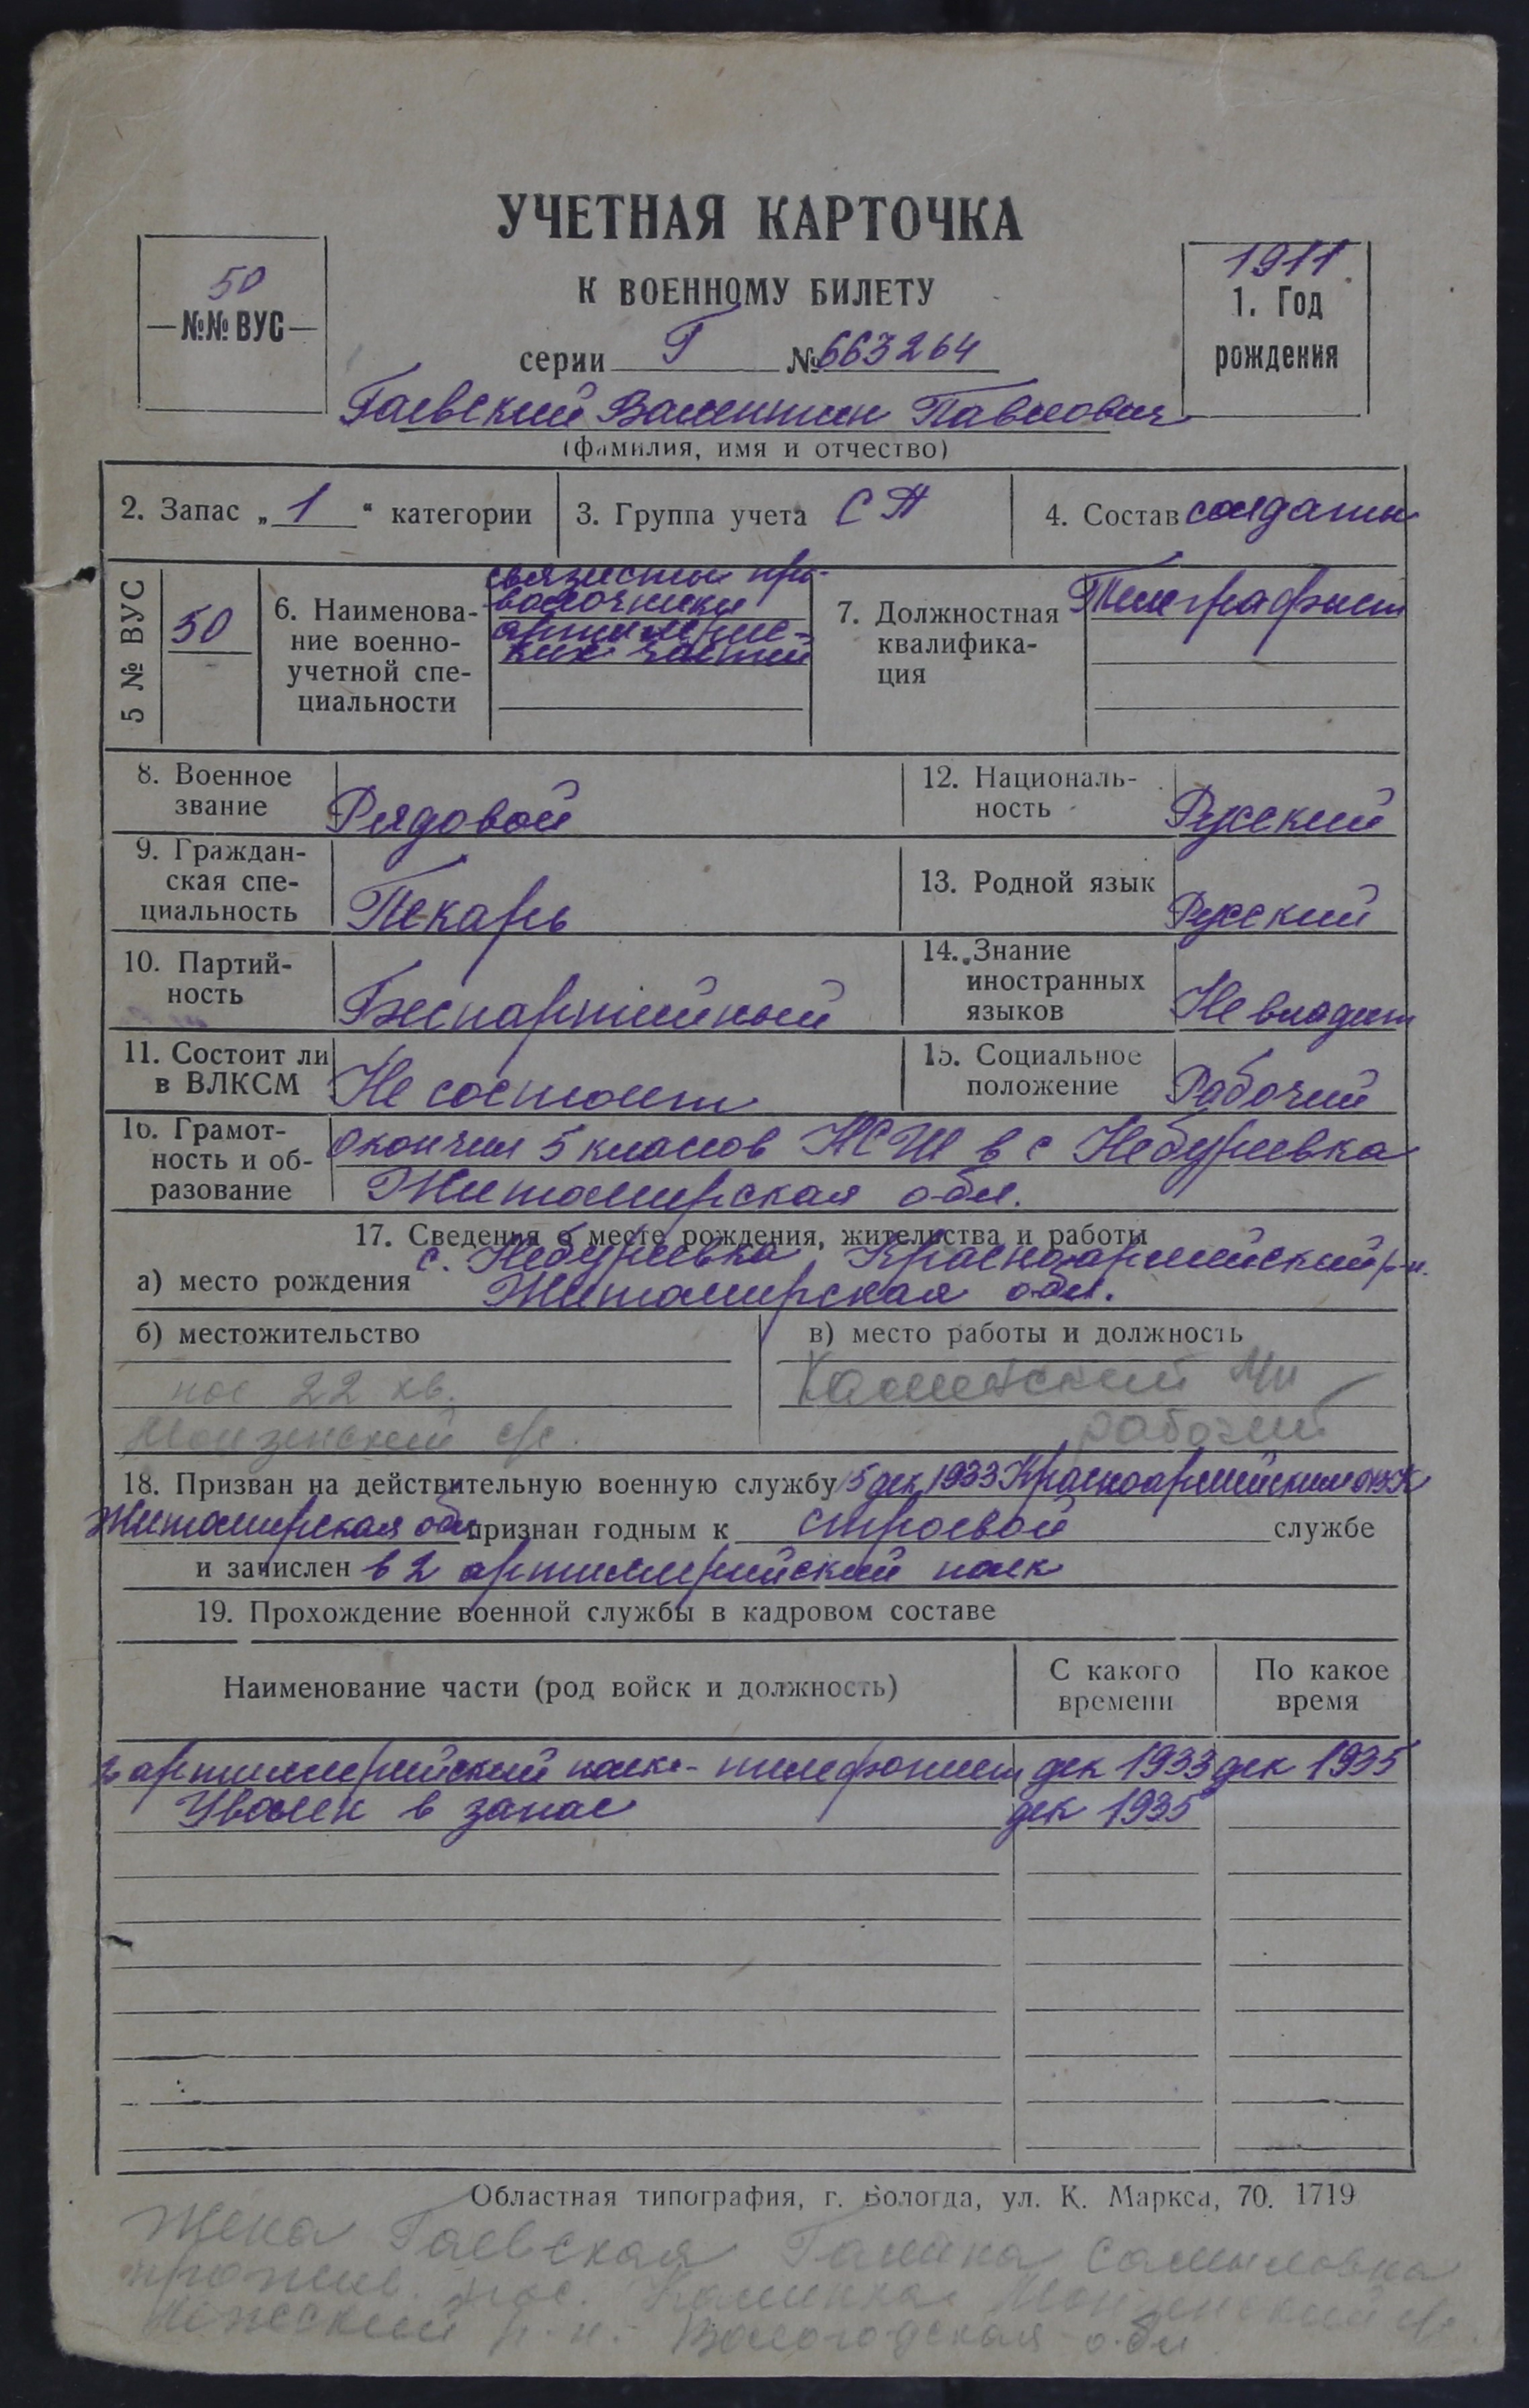 УЧЕТНАЯ КАРТОЧКА
К ВОЕННОМУ БИЛЕТУ
50
№№ ВУС
1911
1. Год
рождения
серии Г № 663264
Гаевский Валентин Павлович
(фамилия, имя и отчество)
2. Запас „ 1 “ категории
3. Группа учета СП
4. Состав солдаты
5 № ВУС
50
6. Наименова-
ние военно-
учетной спе-
циальности
связисты про-
водочники
артиллерис-
ких частей
7. Должностная
квалифика-
ция
Телеграфист
8. Военное
звание
Рядовой
12. Националь-
ность
Русский
9. Граждан-
ская спе-
циальность
Пекарь
13. Родной язык
Русский
10. Партий-
ность
Беспартийный
14. Знание
иностранных
языков
Не владеет
11. Состоит ли
в ВЛКСМ
Не состоит
15. Социальное
положение
Рабочий
16. Грамот-
ность и об-
разование
Окончил 5 классов НСШ в с Небуревка
Житомирская обл.
17. Сведения о месте рождения, жительства и работы
с. Небуревка, Красноармейский р-н.
а) место рождения Житомирская обл.
б) местожительство
в) место работы и должность
пос 22 кв.
Монзенский с/с.
Каменский
рабочий
18. Призван на действительную военную службу 5 дек 1933 Красноармейским
Житомирская обл признан годным к строевой службе
и зачислен в 2 артиллерийский полк
19. Прохождение военной службы в кадровом составе
Наименование части (род войск и должность)
С какого
времени
По какое
время
2 артиллерийский полк - телефонист дек 1933 дек 1935
Уволен в запас дек 1935
Областная типография, г. Вологда, ул. К. Маркса, 70. 1719
Жена Гаевская Галина Самыловна
прожив. пос. Каменка Монзенский с/с.
р-н. Вологодская обл